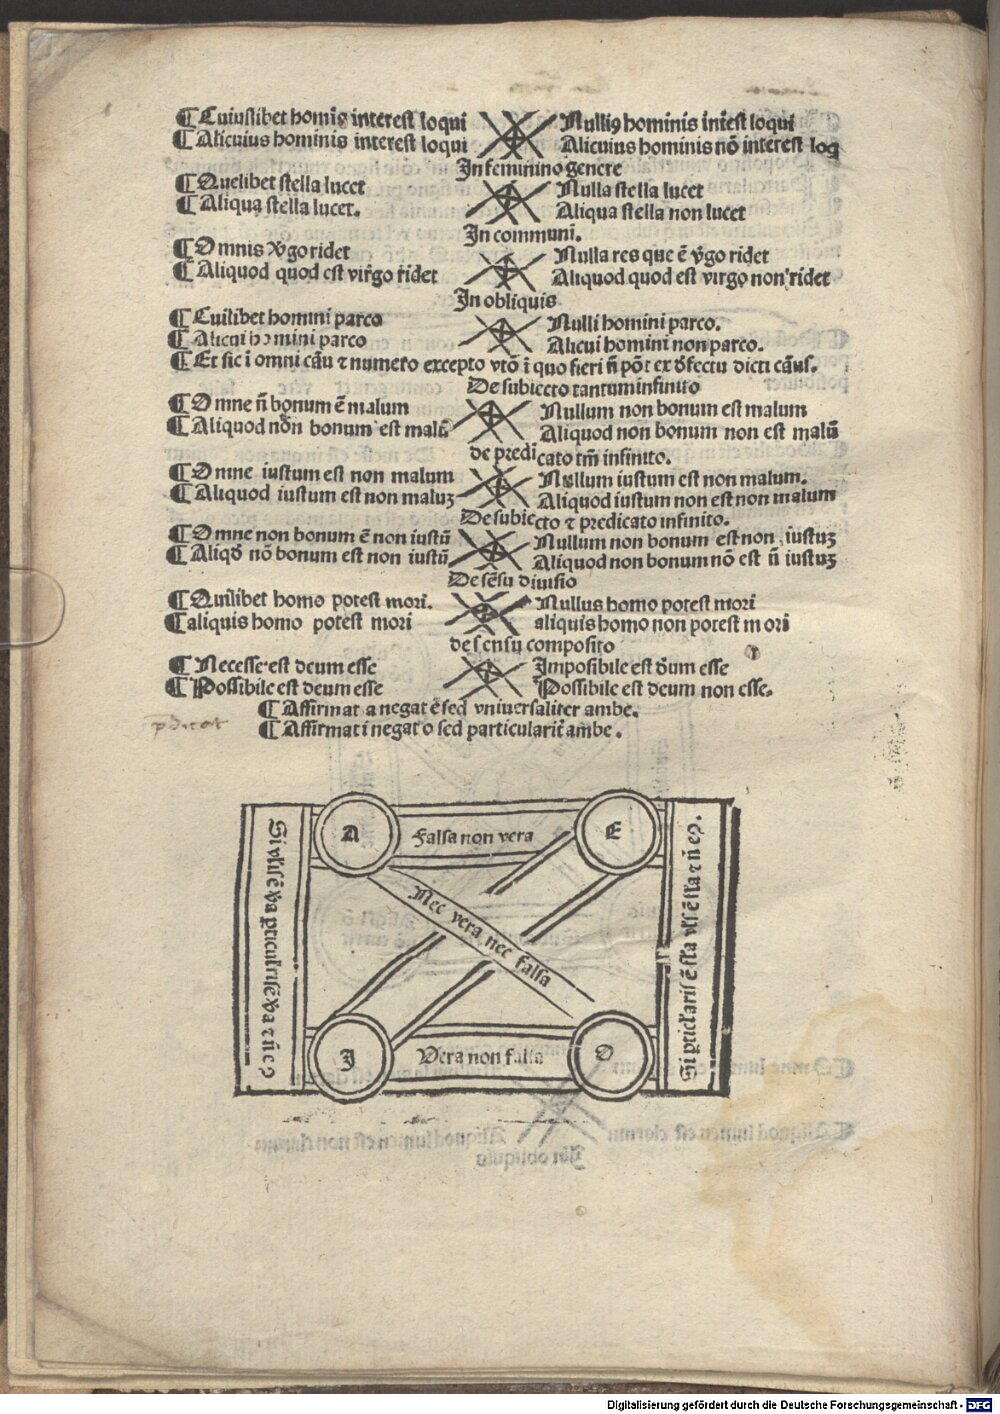 ¶ Cuiuslibet homīs interest loqui Nulliꝰ hominis int̄est loqui
¶ Alicuius hominis interest loqui Alicuius hominis nō interest loq
In feminino genere
¶ Quelibet stella lucet Nulla stella lucet
¶ Aliqua stella lucet. Aliqua stella non lucet
In communi.
¶ Omnis v̄go ridet Nulla res que ē v̄go ridet
¶ Aliquod quod est virgo ridet Aliquod quod est virgo non ridet
In obliquis
¶ Cuilibet homini parco Nulli homini parco.
¶ Alicui homini parco Alicui homini non parco.
¶ Et sic ī omni cāu ⁊ numero excepto vtō ī quo fieri n̄ pōt ex d̄fectu dicti cāus.
De subiecto tantum infinito
¶ Omne n̄ bonum ē malum Nullum non bonum est malum
¶ Aliquod nōn bonum est malū Aliquod non bonum non est malū
de predicato tm̄ infinito.
¶ Omne iustum est non malum Nullum iustum est non malum.
¶ Aliquod iustum est non maluꝫ Aliquod iustum non est non malum
De subiecto ⁊ predicato infinito.
¶ Omne non bonum ē non iustū Nullum non bonum est non iustuꝫ
¶ Aliqd̄ nō bonum est non iustū Aliquod non bonum nō est n̄ iustuꝫ
De sēsu diuisio
¶ Quilibet homo potest mori. Nullus homo potest mori
¶ aliquis homo potest mori aliquis homo non potest mori
de sensu composito
¶ Necesse est deum esse Imposibile est d̄um esse
¶ Possibile est deum esse Possibile est deum non esse.
¶ Affirmat a negat e sed vniuersaliter ambe.
¶ Affirmat i negat o sed particularit̄ ambe.
A Falsa non vera E
Nec vera nec falsa
I Vera non falsa O
Digitalisierung gefördert durch die Deutsche Forschungsgemeinschaft - DFG